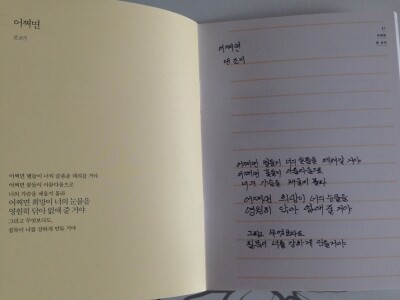 어쩌면
댄 조지
어쩌면 별들이 너의 슬픔을 데려갈 거야
어쩌면 꽃들이 아름다움으로
너의 가슴을 채울지 몰라
어쩌면 희망이 너의 눈물을
영원히 닦아 없애 줄 거야
그리고 무엇보다도,
침묵이 너를 강하게 만들 거야
어쩌면
댄 조지
어쩌면 별들이 너의 슬픔을 데려갈 거야
어쩌면 꽃들이 아름다움으로
너의 가슴을 채울지 몰라
어쩌면 희망이 너의 눈물을
영원히 닦아 없애 줄 거야
그리고 무엇보다도
침묵이 너를 강하게 만들거야